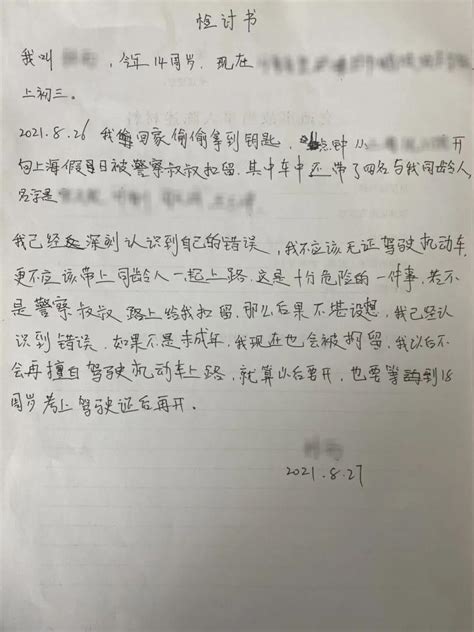 检讨书
我叫，今年14周岁，现在
上初三。
2021.8.26 我回家偷偷拿到钥匙，点钟从开
向上海假日被警察叔叔扣留。其中车中还带了四名与我同龄人，
名字是
我已经深刻认识到自己的错误，我不应该无证驾驶机动车，
更不应该带上同龄人一起上路。这是十分危险的一件事，若不
是警察叔叔路上给我扣留，那么后果不堪设想，我已经认
识到错误，如果不是未成年，我现在也会被拘留，我以后不
会再擅自驾驶机动车上路，就算以后要开，也要等到18
周岁考上驾驶证后再开。
2021.8.27